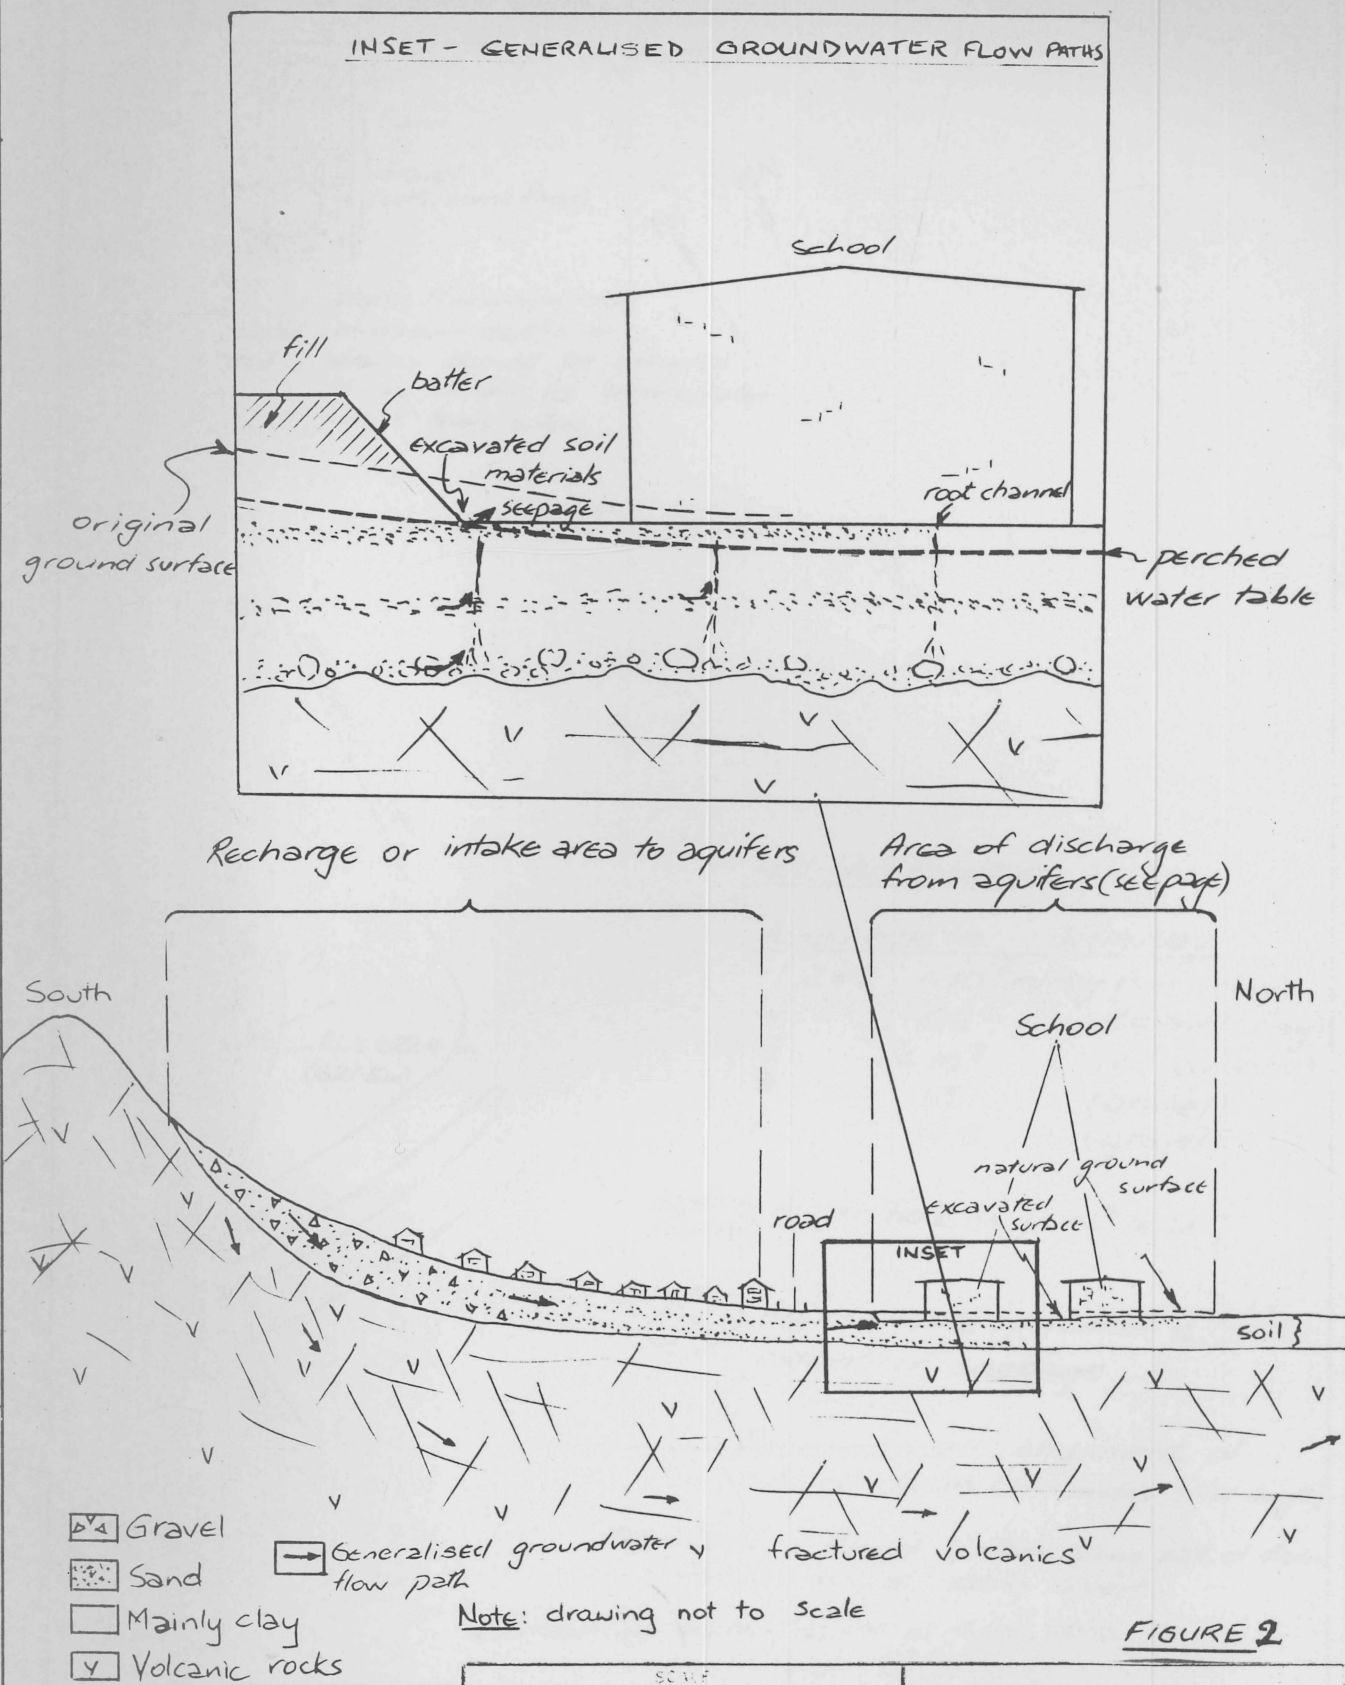 INSET - GENERALISED GROUNDWATER FLOW PATHS
school
fill
batter
excavated soil
materials
seepage
root channel
original
ground surface
perched
water table
V
V
V
V
V
Recharge or intake area to aquifers
Area of discharge
from aquifers (seepage)
South
North
School
natural ground
surface
excavated
surface
road
INSET
soil
fractured volcanics
Gravel
Sand
Mainly clay
V Volcanic rocks
Generalised groundwater
flow path
Note: drawing not to scale
FIGURE 2
SCALE